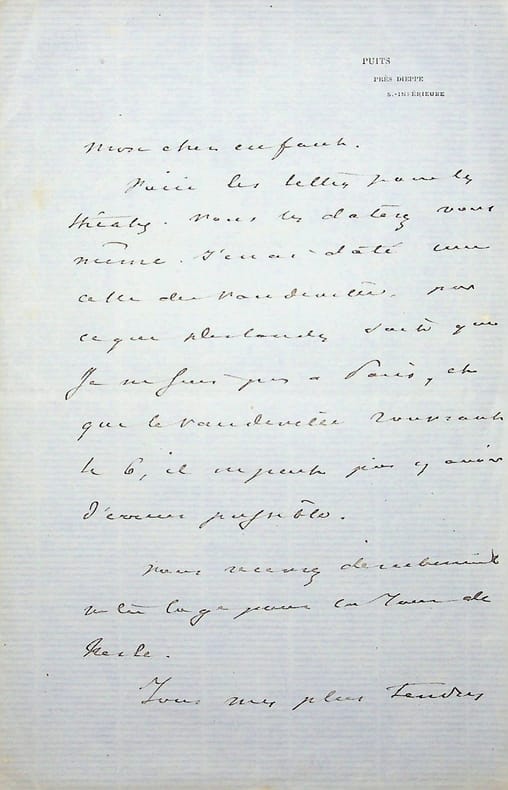 PUITS
PRÈS DIEPPE
S.-INFÉRIEURE
Mon cher enfant.
Voici les lettres pour les
théâtres. Vous les daterez vous
même. J'en ai daté une
celle du Vaudeville, par
ce que Deslandes sait que
je ne suis pas a Paris, et
que le Vaudeville rouvrant
le 6, il ne peut pas y avoir
d'erreur possible.
Vous recevrez
votre loge pour la Tour de
Nesle.
Tous mes plus tendres